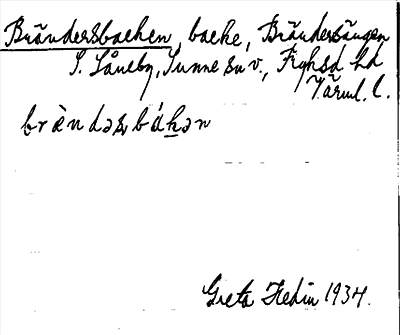 Brändersbacken, backe, Brändersängen
S. Låneby, Sunne sn v., Fryksd. hd
Värml. l.
brȁndəsbákən
Greta Hedin 1934.